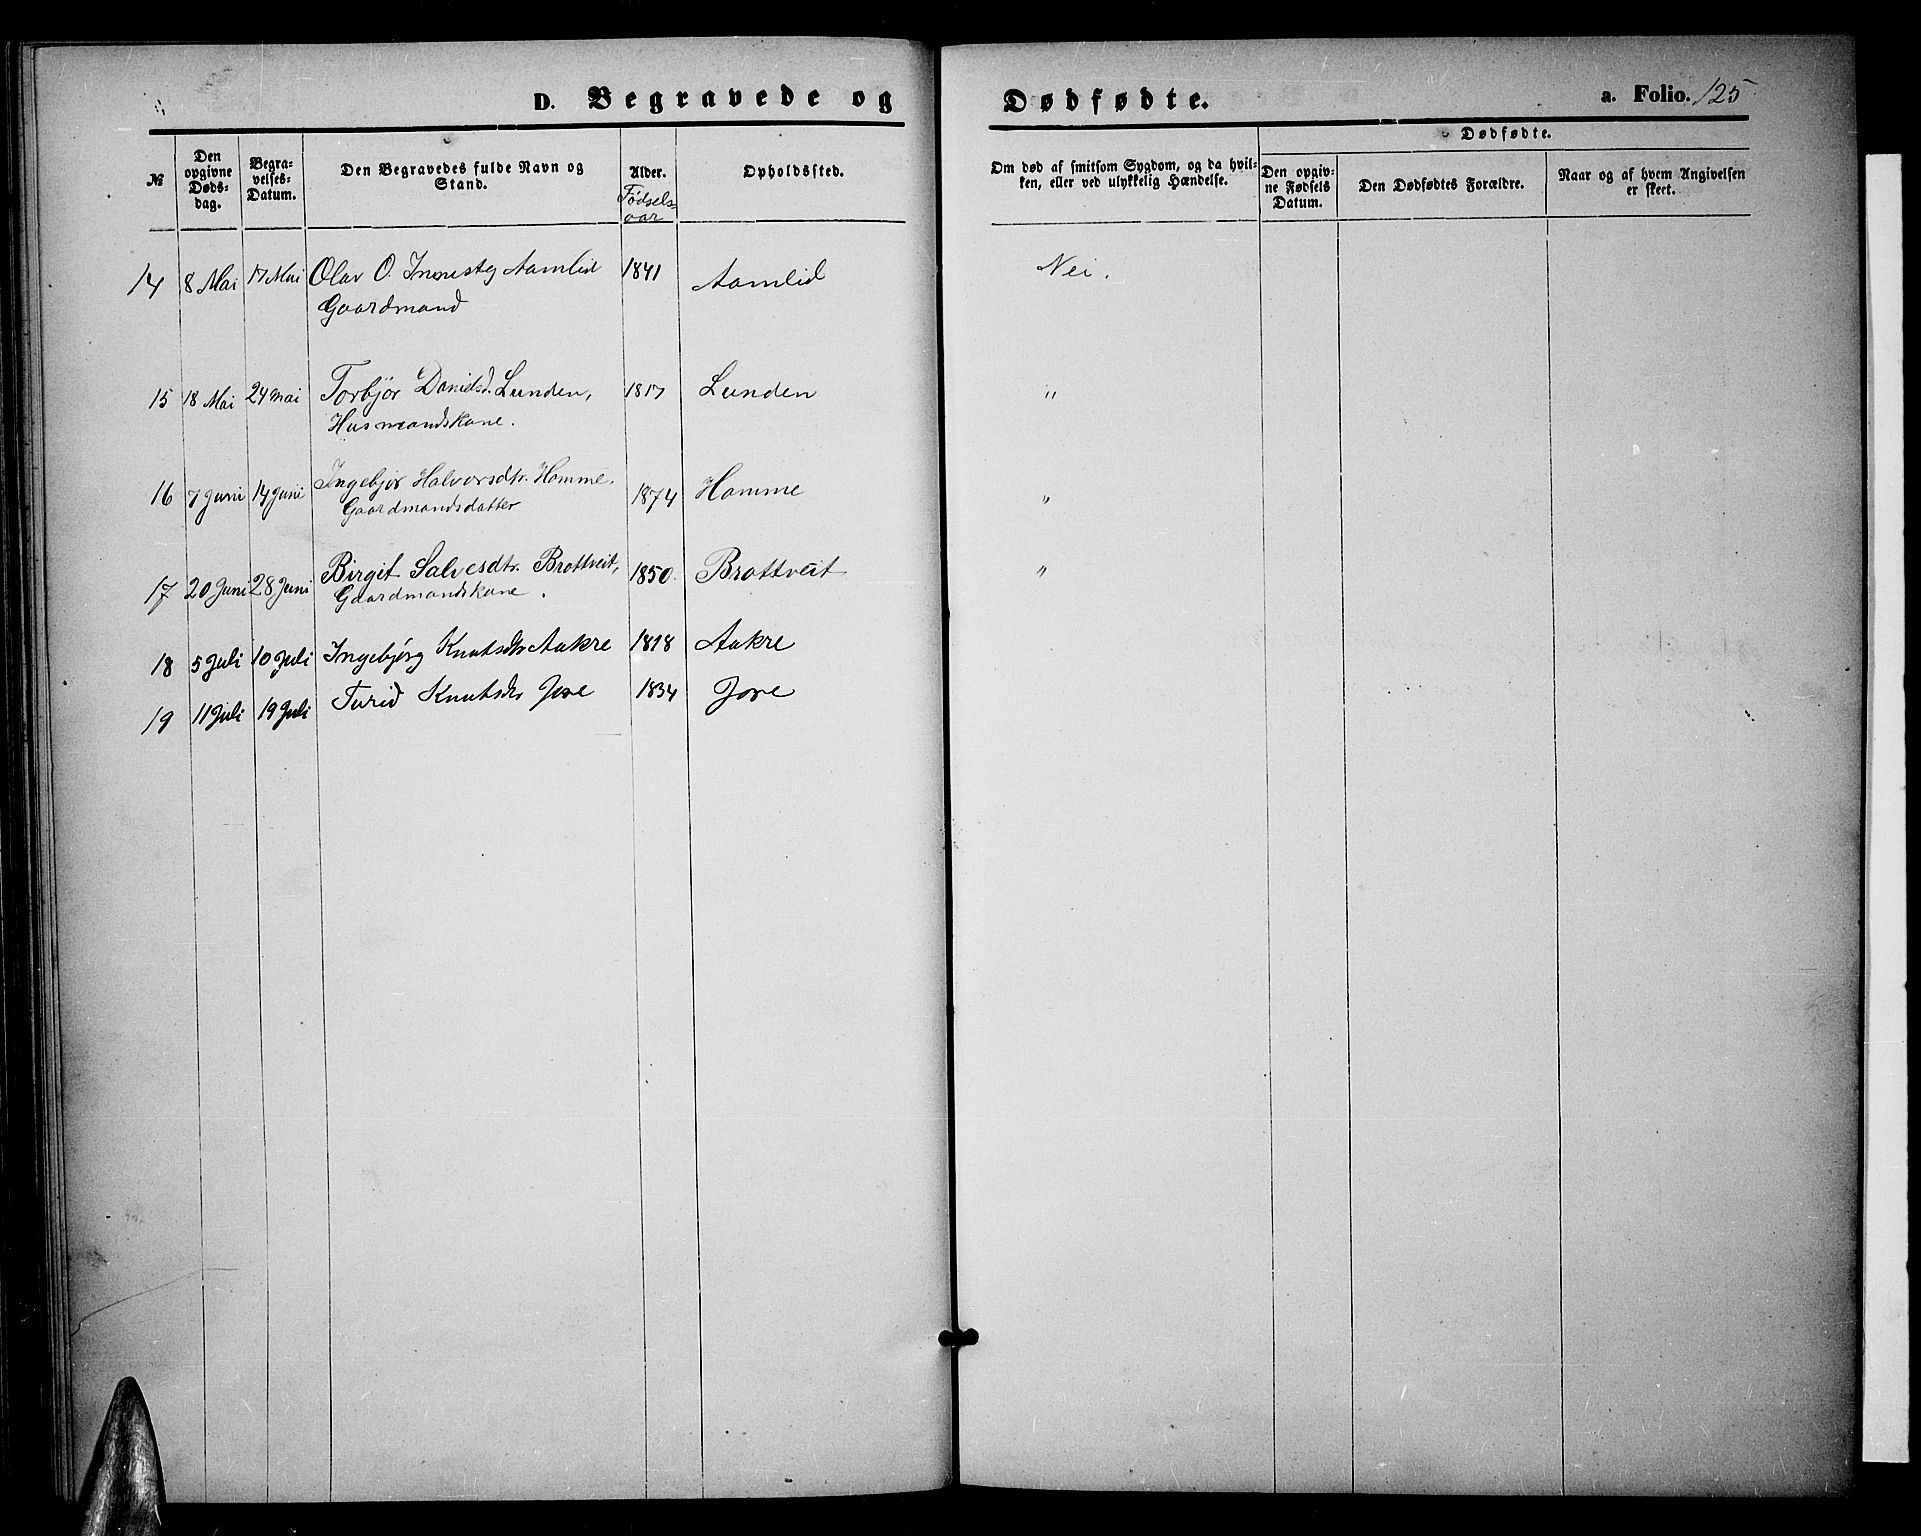 D. Begravede og Dødfødte. a. Folio. 125
№ Den opgivne Døds-dag. Begra-velses-Datum. Den Begravedes fulde Navn og Stand. Alder. Fødsels-aar Opholdssted. Om død af smitsom Sygdom, og da hvil-ken, eller ved ulykkelig Hændelse. Dødfødte. Den opgiv-ne Fødsels Datum. Den Dødfødtes Forældre. Naar og af hvem Angivelsen er skeet.
14 8 Mai 17 Mai Olav O. Aamlid 1841 Aamlid Nei.
Gaardmand
15 18 Mai 24 Mai Torbjør Danielsd. Lunden, 1817 Lunden "
Husmandskone.
16 7 Juni 14 Juni Ingebjør Halvorsdtr. Homme. 1874 Homme "
Gaardmandsdatter
17 20 Juni 28 Juni Birgit Salvesdtr. Brottveit, 1850. Brottveit "
Gaardmandskone.
18 5 Juli 10 Juli Ingebjørg Knutsdtr Aakre 1818 Aakre
19 11 Juli 19 Juli Turid Knutsdtr Jore 1834 Jore